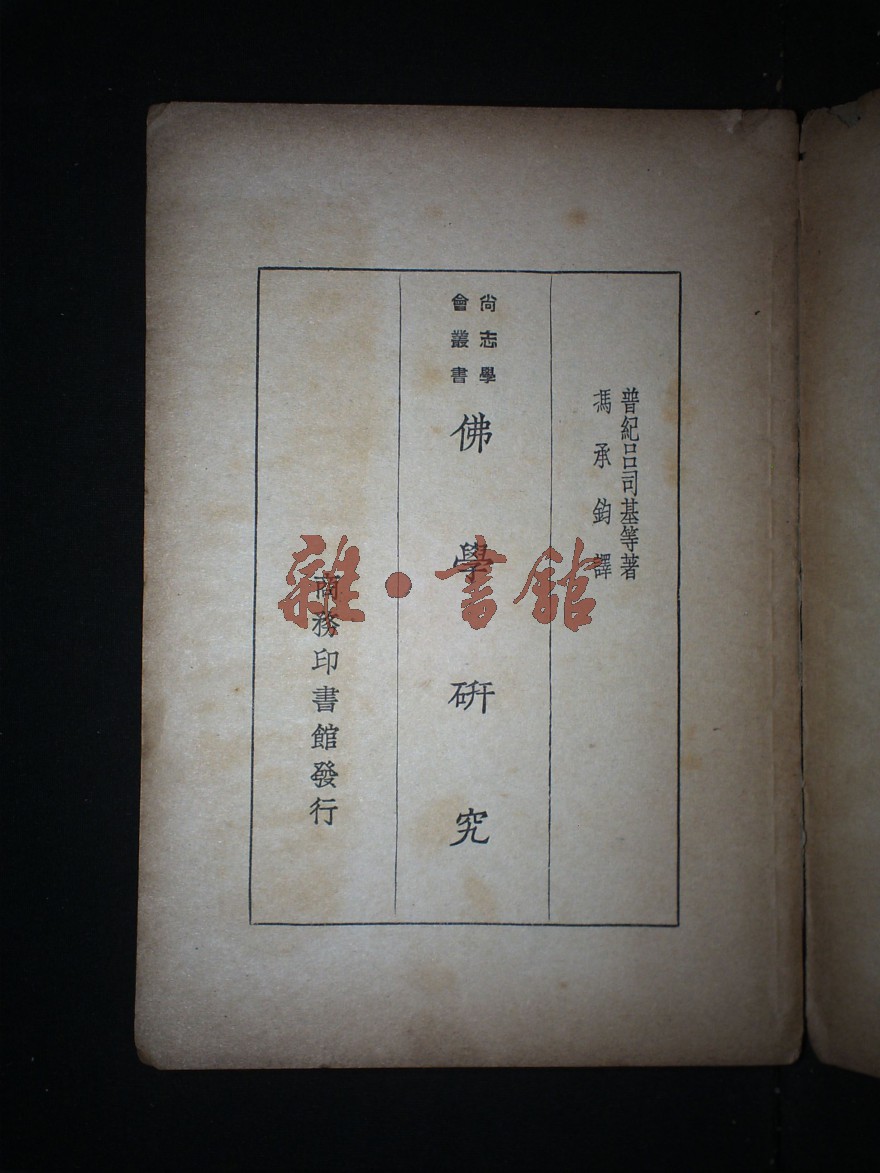 普紀呂司基等著
馮承鈞譯
尙志學
會叢書
佛學研究
商務印書館發行
雜·書館